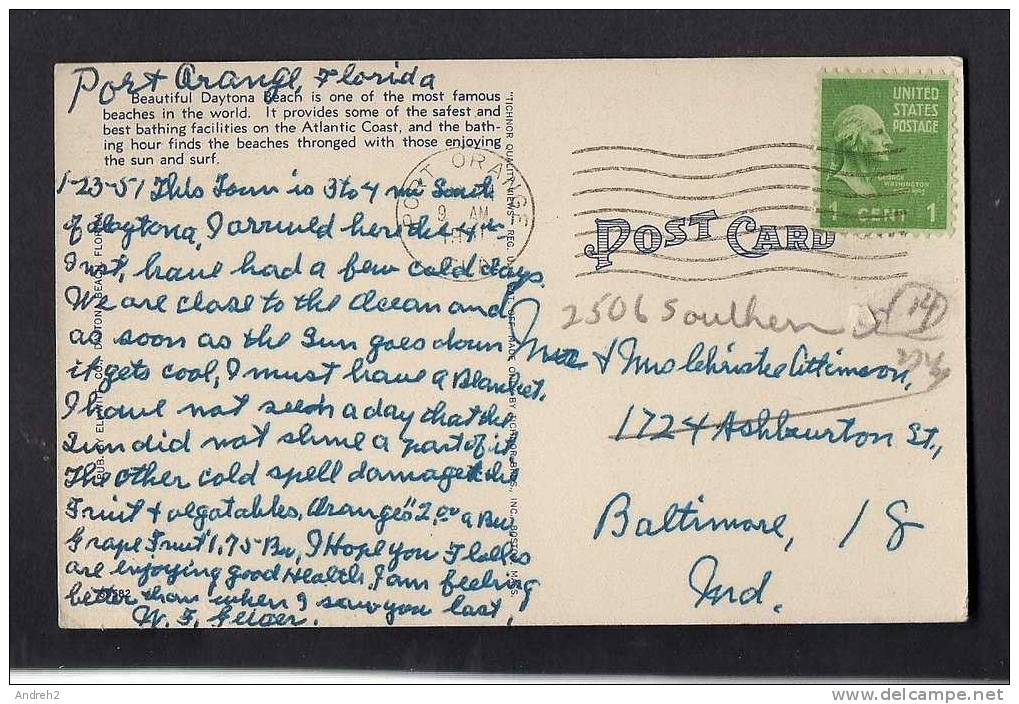 Port Orange, Florida
Beautiful Daytona Beach is one of the most famous
beaches in the world. It provides some of the safest and
best bathing facilities on the Atlantic Coast, and the bath-
ing hour finds the beaches thronged with those enjoying
the sun and surf.
1-23-51 This Town is 3 to 4 mi South
of Daytona, I arrived here the 4th
Inst, have had a few cold days.
We are close to the Ocean and
as soon as the Sun goes down
it gets cool, I must have a Blanket,
I have not seen a day that the
Sun did not shine a part of it,
The other cold spell damaged the
Fruit & vegatables. Oranges "2.00 a Bu-
Grape Fruit 1,75 Bu, I Hope you Folks
are enjoying good Health, I am feeling
better than when I saw you last,
W. F. Geiger.
"TICHNOR QUALITY VIEWS" REG. U. S. PAT. OFF. MADE ONLY BY TICHNOR BROS., INC., BOSTON, MASS.
PORT ORANGE
9 AM
UNITED
STATES
POSTAGE
GEORGE
WASHINGTON
1 CENT 1
POST CARD
2506 Southern
14
Mr & Mrs Christie
1724 Ashburton St.,
Baltimore, 18
Md.
Andreh2
www.delcampe.net